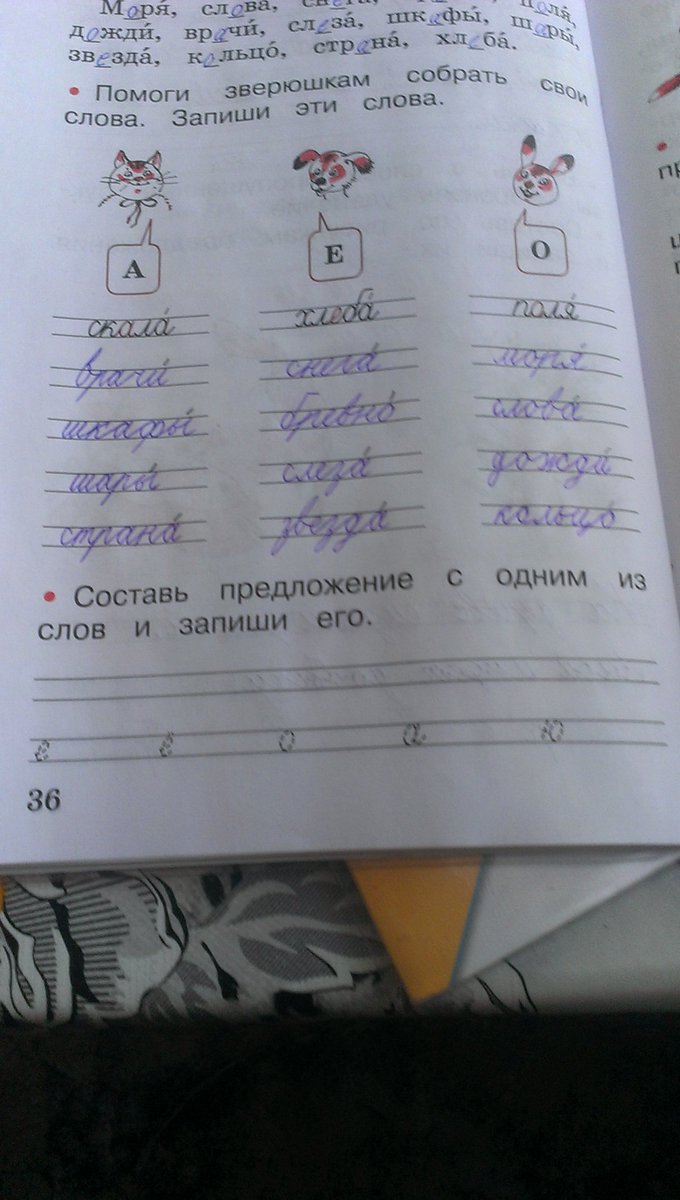 Моря́, слова́,
дожди́, врачи́, слеза́, шкафы́, шары́,
звезда́, кольцо́, страна́, хлеба́.
• Помоги зверюшкам собрать свои
слова. Запиши эти слова.
А Е О
скала́ хлеба́ поля́
врачи́ снега́ моря́
шкафы́ бревно́ слова́
шары́ слеза́ дожди́
страна́ звезда́ кольцо́
• Составь предложение с одним из
слов и запиши его.
е ё о а ю
36